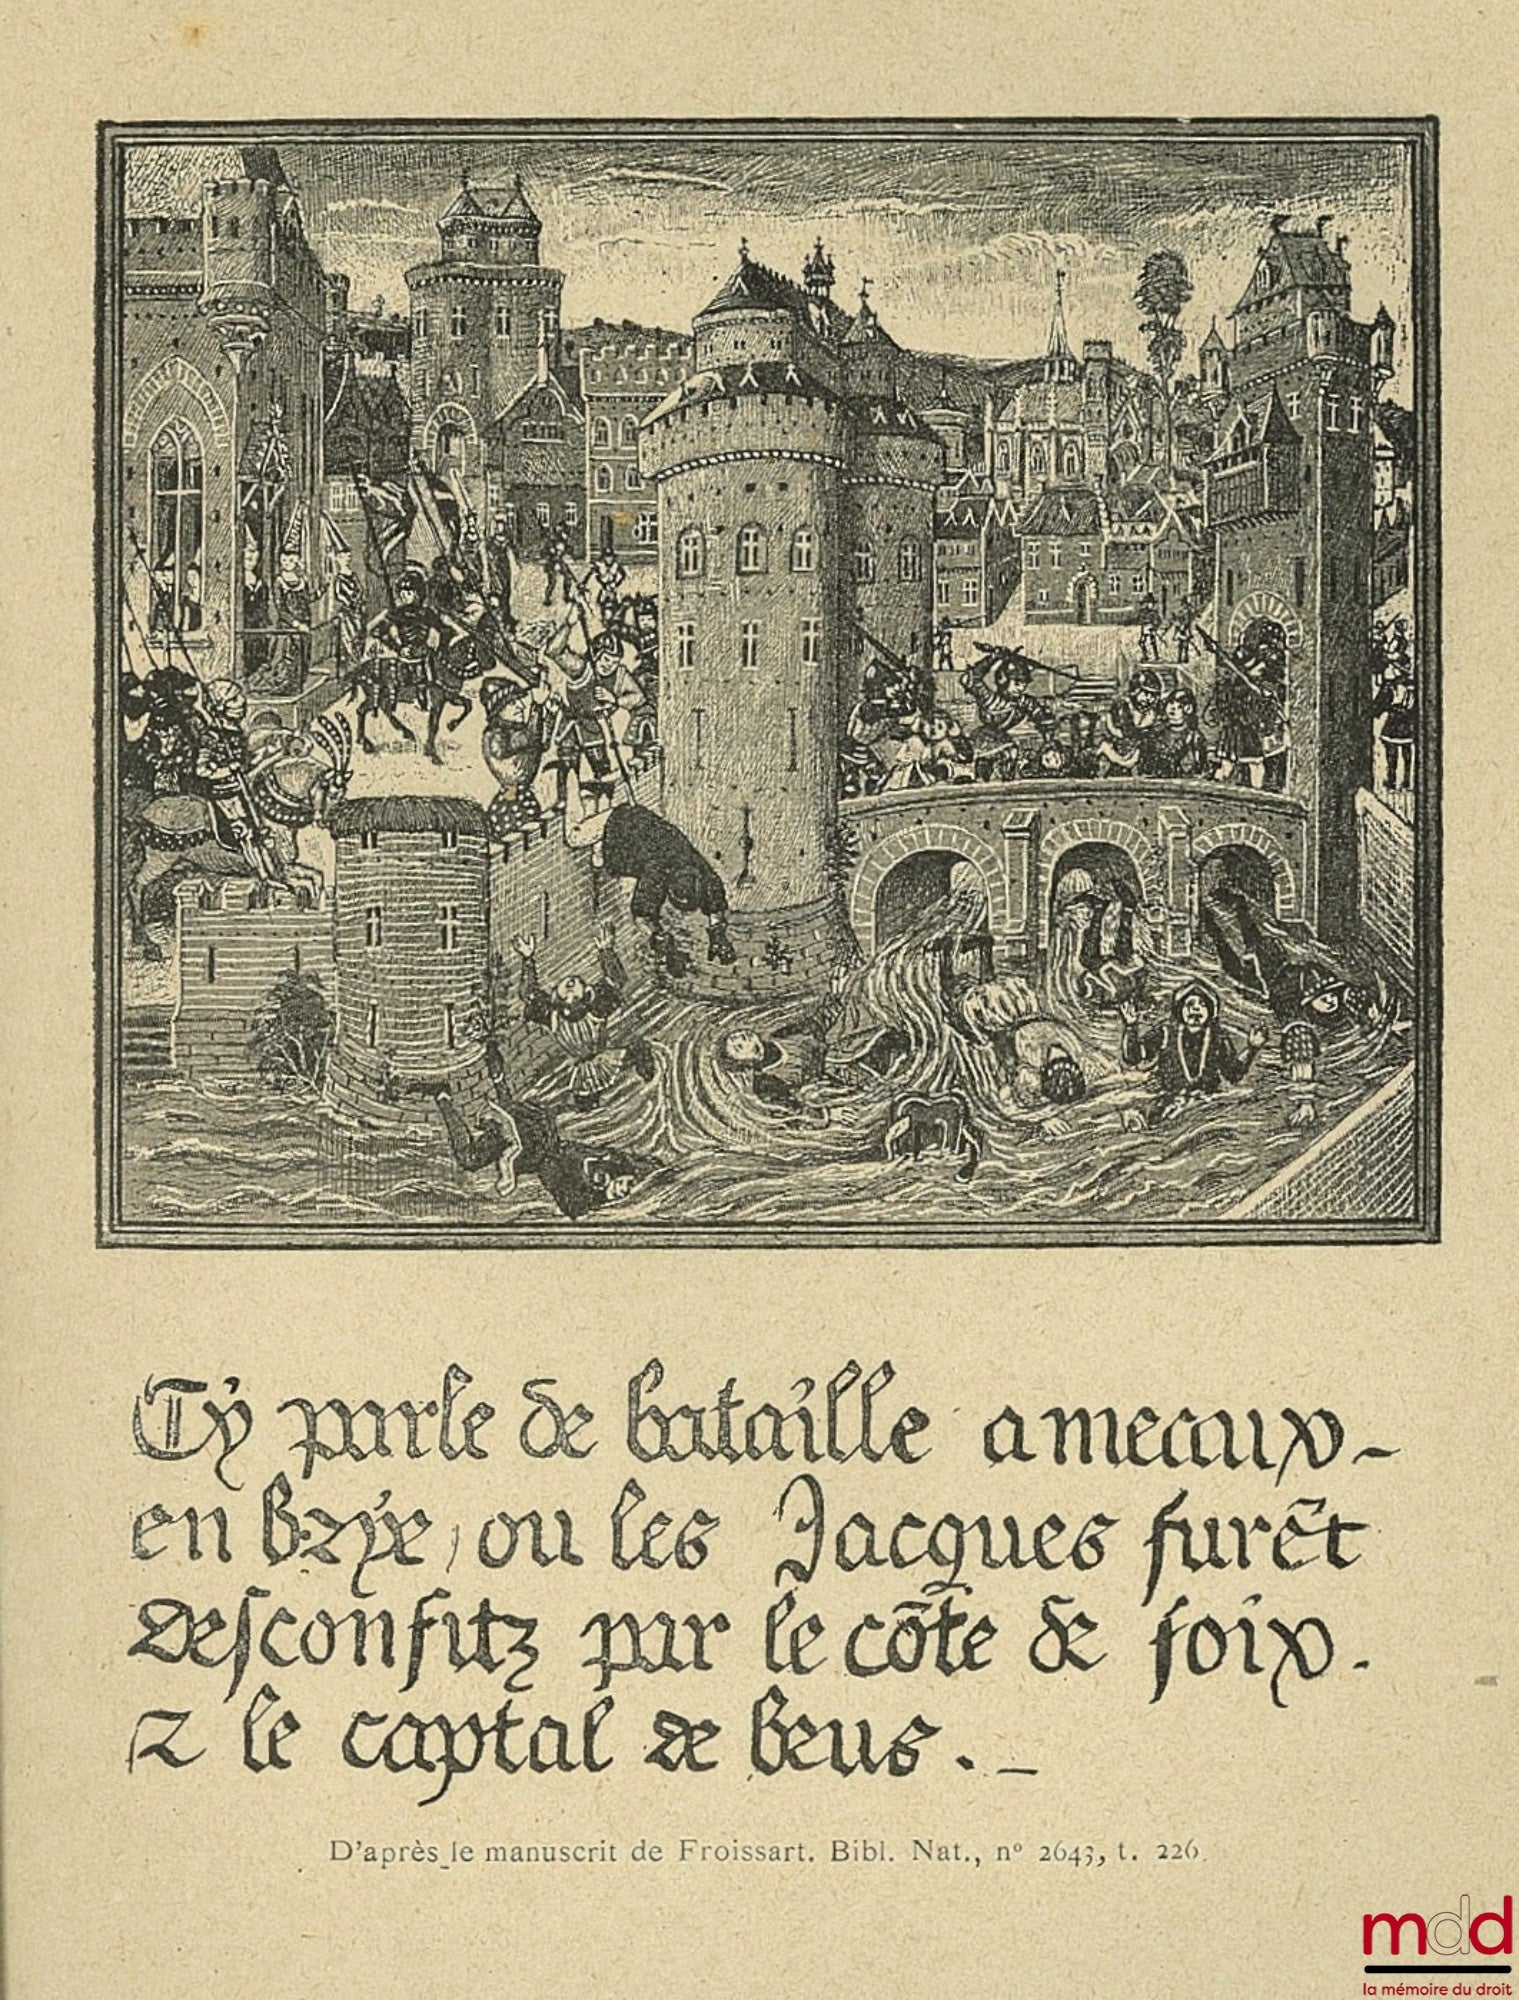 Cy parle de bataille a meaux-
en brye, ou les Jacques furēt
desconfitz par le cōte de foix.
⁊ le captal de beus. _
D'après le manuscrit de Froissart. Bibl. Nat., nº 2643, t. 226.
mdd
la mémoire du droit